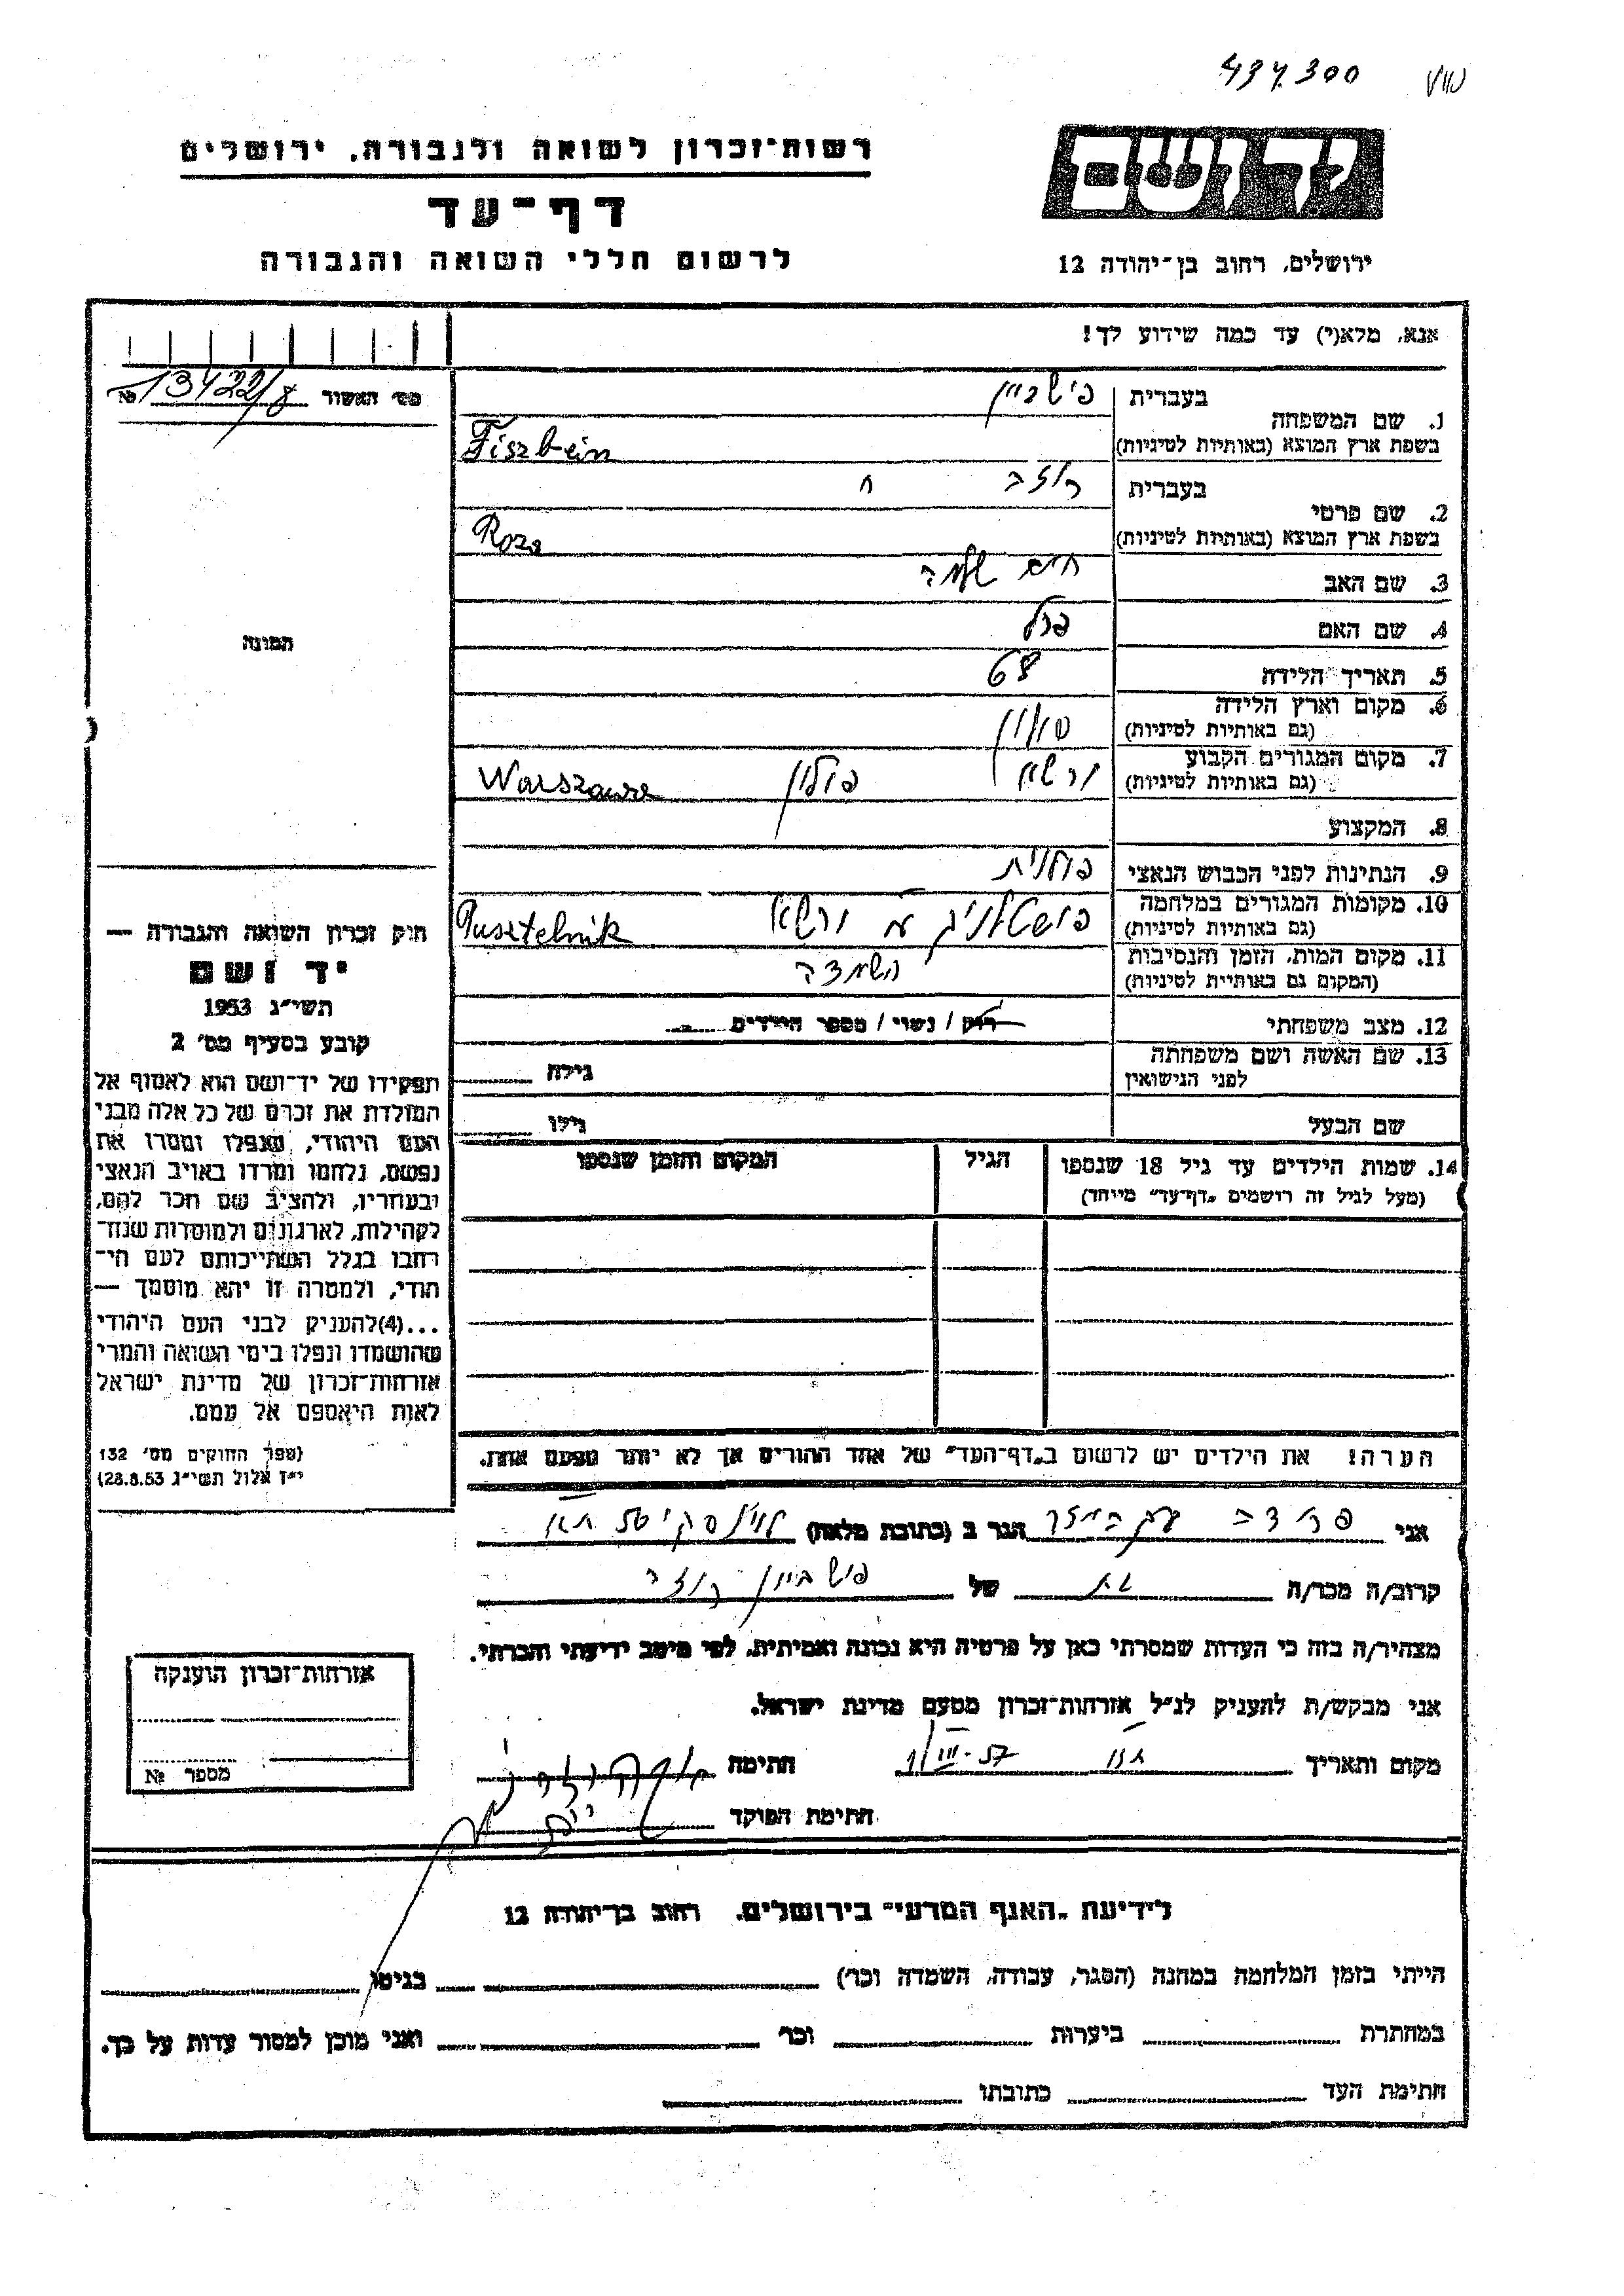 437.300
רשות־זכרון לשואה ולגבורה, ירושלים
דף־עד
לרשום חללי השואה והגבורה
יד ושם
ירושלים, רחוב בן־יהודה 12
אנא, מלא(י) עד כמה שידוע לך!
מס׳ האשור 13422/8 №
1. שם המשפחה
בעברית פישביין
בשפת ארץ המוצא (באותיות לטיניות) Fiszbein
2. שם פרטי
בעברית רוזה
בשפת ארץ המוצא (באותיות לטיניות) Roza
3. שם האב חיים שלמה
4. שם האם פרל
5. תאריך הלידה 68
6. מקום וארץ הלידה
(גם באותיות לטיניות) פולין
7. מקום המגורים הקבוע
(גם באותיות לטיניות) ורשא פולין Warszawa
8. המקצוע
9. הנתינות לפני הכבוש הנאצי פולנית
10. מקומות המגורים במלחמה
(גם באותיות לטיניות) פושטלניק ורשא Pusztelnik
11. מקום המות, הזמן והנסיבות
(המקום גם באותיות לטיניות) השמדה
12. מצב משפחתי רוק / נשוי / מספר הילדים
13. שם האשה ושם משפחתה
לפני הנישואין גילה
שם הבעל גילו
14. שמות הילדים עד גיל 18 שנספו
(מעל לגיל זה רושמים „דף־עד״ מיוחד)
הגיל
המקום והזמן שנספו
הערה: את הילדים יש לרשום ב„דף־העד״ של אחד ההורים אך לא יותר מפעם אחת.
תמונה
חוק זכרון השואה והגבורה —
יד ושם
תשי״ג 1953
קובע בסעיף מס׳ 2
תפקידו של יד־ושם הוא לאסוף אל
המולדת את זכרם של כל אלה מבני
העם היהודי, שנפלו ומסרו את
נפשם, נלחמו ומרדו באויב הנאצי
ובעוזריו, ולהציב שם וזכר להם,
לקהילות, לארגונים ולמוסדות שנח־
רבו בגלל השתייכותם לעם הי־
הודי, ולמטרה זו יהא מוסמך —
...(4) להעניק לבני העם היהודי
שהושמדו ונפלו בימי השואה והמרי
אזרחות־זכרון של מדינת ישראל
לאות היאספם אל עמם.
(ספר החוקים מס׳ 132
י״ז אלול תשי״ג 28.8.53)
אני הגר ב (כתובת מלאה)
קרוב/ה מכר/ה בת של פישביין רוזה
מצהיר/ה בזה כי העדות שמסרתי כאן על פרטיה היא נכונה ואמיתית, לפי מיטב ידיעתי והכרתי.
אני מבקש/ת להעניק לנ״ל אזרחות־זכרון מטעם מדינת ישראל.
מקום ותאריך 1/III-57 חתימה
חתימת הפוקד
אזרחות־זכרון הוענקה
מספר №
לידיעת „האגף המדעי״ בירושלים, רחוב בן־יהודה 12
הייתי בזמן המלחמה במחנה (הסגר, עבודה, השמדה וכו׳) בגיטו
במחתרת ביערות וכו׳ ואני מוכן למסור עדות על כך.
חתימת העד כתובתו